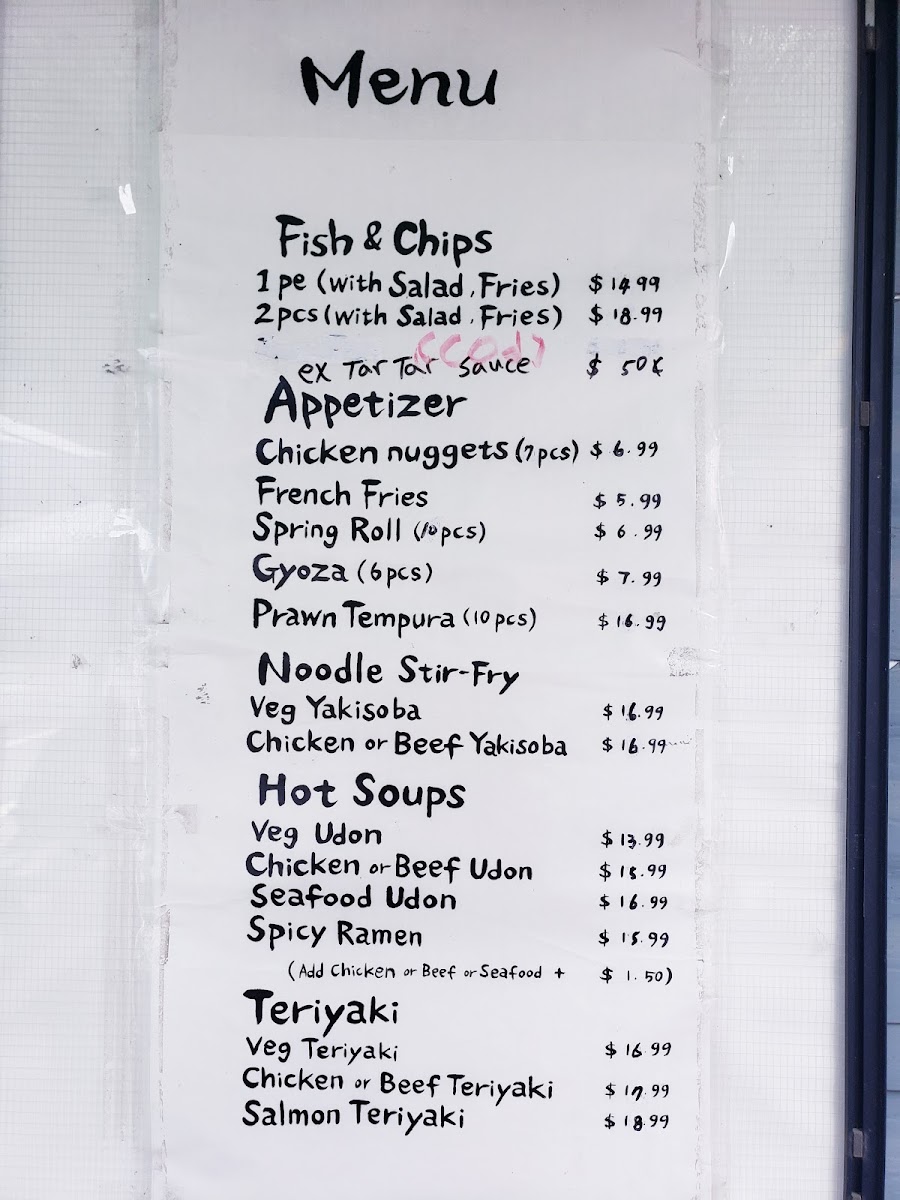 Menu
Fish & Chips
1 pe (with Salad, Fries) $14.99
2 pcs (with Salad, Fries) $18.99
(COd)
ex TarTar Sauce $ 50¢
Appetizer
Chicken nuggets (7pcs) $6.99
French Fries $5.99
Spring Roll (10pcs) $6.99
Gyoza (6pcs) $7.99
Prawn Tempura (10pcs) $16.99
Noodle Stir-Fry
Veg Yakisoba $16.99
Chicken or Beef Yakisoba $16.99
Hot Soups
Veg Udon $13.99
Chicken or Beef Udon $15.99
Seafood Udon $16.99
Spicy Ramen $15.99
(Add Chicken or Beef or Seafood + $1.50)
Teriyaki
Veg Teriyaki $16.99
Chicken or Beef Teriyaki $17.99
Salmon Teriyaki $18.99